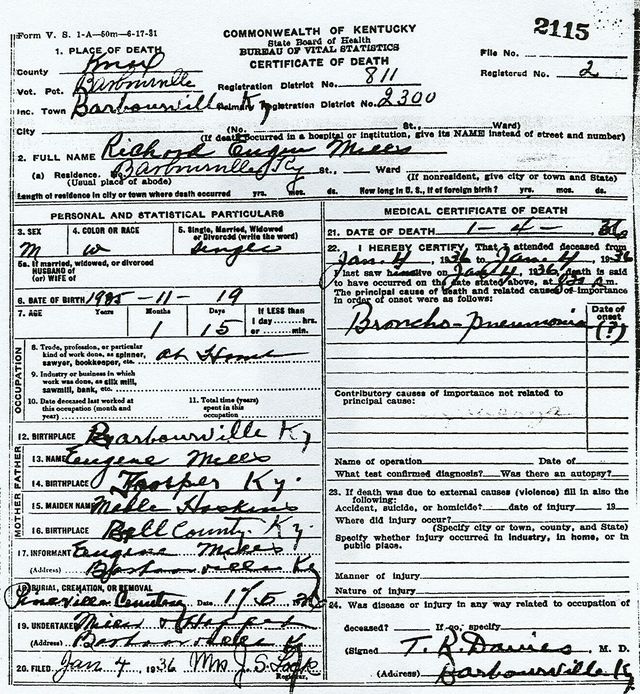 Form V. S. 1-A—50m—6-17-31
COMMONWEALTH OF KENTUCKY
State Board of Health
BUREAU OF VITAL STATISTICS
CERTIFICATE OF DEATH
2115
1. PLACE OF DEATH
County Knox
Vot. Pct. Barbourville
Inc. Town Barbourville Ky
Registration District No. 811
Primary Registration District No. 2300
File No.
Registered No. 2
City (No. St., Ward)
(If death occurred in a hospital or institution, give its NAME instead of street and number)
2. FULL NAME Richard Eugene Mills
(a) Residence. No. Barbourville, Ky St., Ward
(Usual place of abode) (If nonresident, give city or town and State)
Length of residence in city or town where death occurred yrs. mos. ds. How long in U.S., if of foreign birth? yrs. mos. ds.
PERSONAL AND STATISTICAL PARTICULARS
3. SEX M
4. COLOR OR RACE W
5. Single, Married, Widowed or Divorced (write the word) Single
5a. If married, widowed, or divorced
HUSBAND of
(or) WIFE of
6. DATE OF BIRTH 1935-11-19
7. AGE Years Months Days If LESS than
1 15 1 day hrs.
or min.
OCCUPATION
8. Trade, profession, or particular
kind of work done, as spinner,
sawyer, bookkeeper, etc. at Home
9. Industry or business in which
work was done, as silk mill,
sawmill, bank, etc.
10. Date deceased last worked at
this occupation (month and
year)
11. Total time (years)
spent in this
occupation
12. BIRTHPLACE Barbourville Ky
FATHER
13. NAME Eugene Mills
14. BIRTHPLACE Ky.
MOTHER
15. MAIDEN NAME Hoskins
16. BIRTHPLACE Bell County Ky.
17. INFORMANT Eugene Mills
(Address) Barbourville Ky
18. BURIAL, CREMATION, OR REMOVAL
Pineville Cemetery Date 1/5 36
19. UNDERTAKER Mills & Hopper
(Address) Barbourville Ky
20. FILED Jan 4 1936 Mrs J. S.
Registrar.
MEDICAL CERTIFICATE OF DEATH
21. DATE OF DEATH 1-4-36
22. I HEREBY CERTIFY, That I attended deceased from
Jan 4, 1936 to Jan 4, 1936
I last saw him alive on Jan 4, 1936, death is said
to have occurred on the date stated above, at m.
The principal cause of death and related causes of importance
in order of onset were as follows:
Date of
onset
Broncho-pneumonia (?)
Contributory causes of importance not related to
principal cause:
Name of operation Date of
What test confirmed diagnosis? Was there an autopsy?
23. If death was due to external causes (violence) fill in also the
following:
Accident, suicide, or homicide? date of injury 19
Where did injury occur?
(Specify city or town, county, and State)
Specify whether injury occurred in industry, in home, or in
public place.
Manner of injury
Nature of injury
24. Was disease or injury in any way related to occupation of
deceased? If so, specify
(Signed T. R. Davies, M. D.
(Address) Barbourville Ky